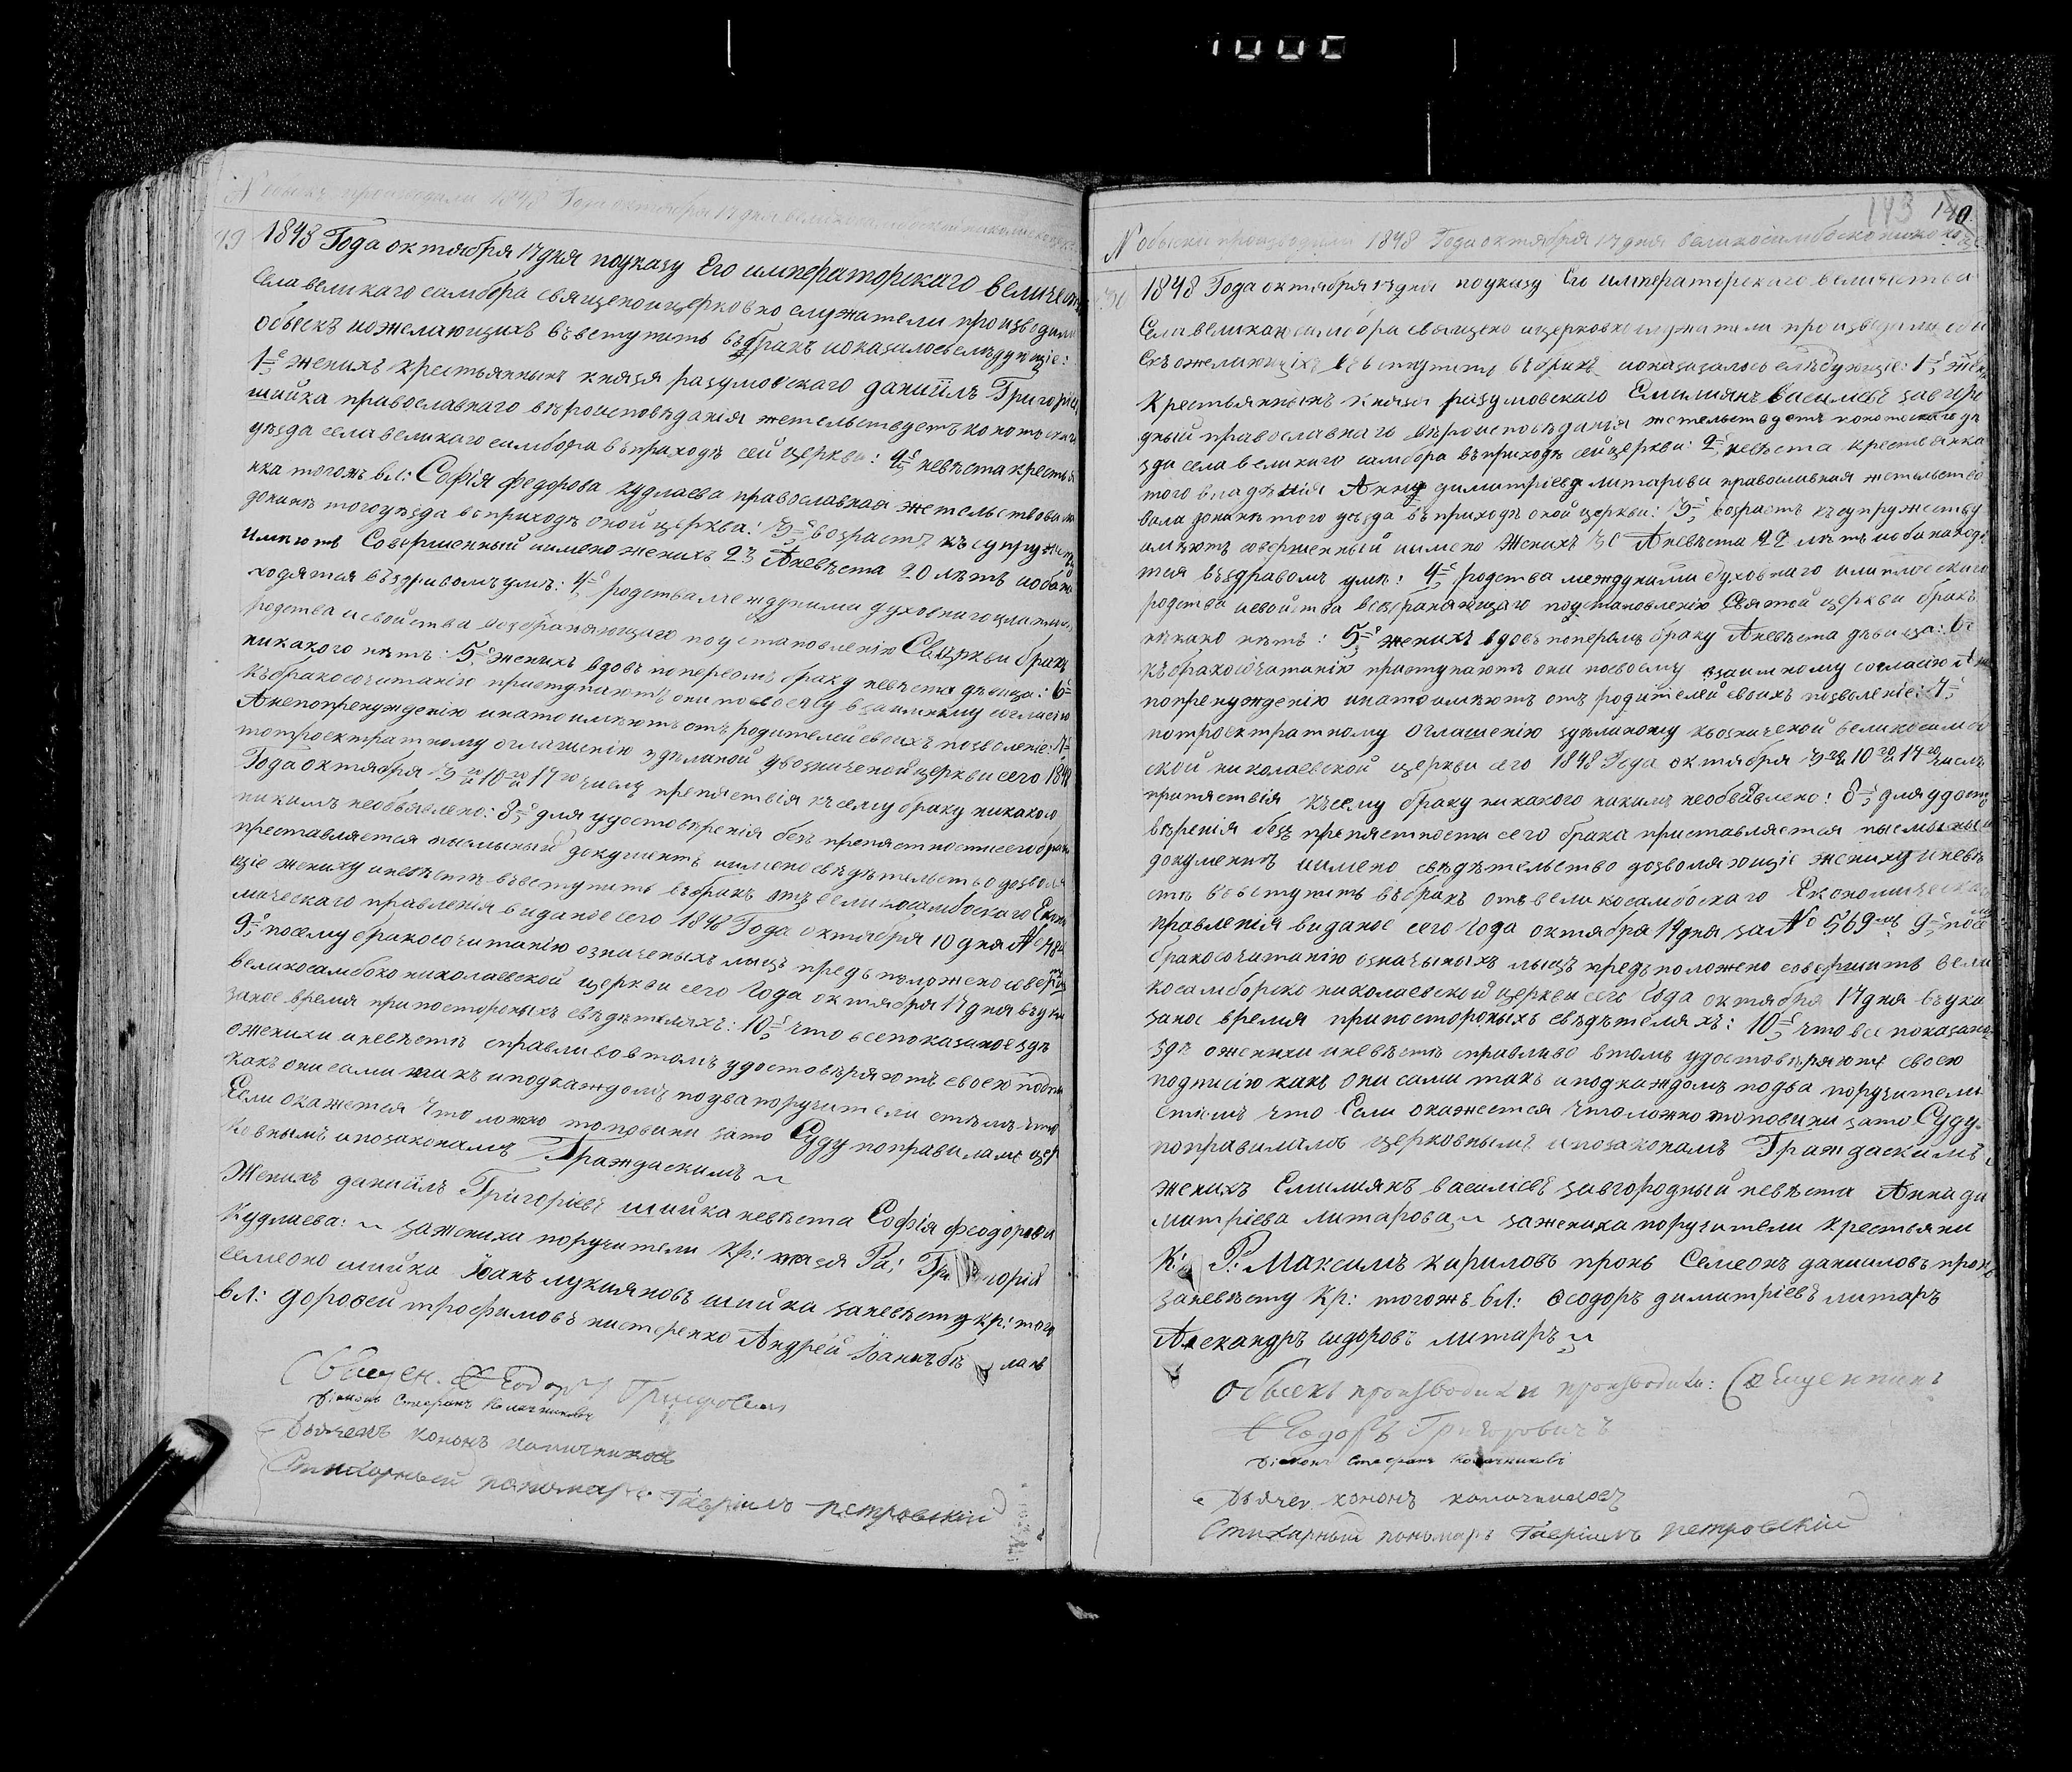 N Обыскъ производили 1848 Года октября 17 дня
29 1848 Года октября 17 дня поуказу Его императорскаго величества
Села великаго самбора священоицерковно служатели произволили
обыскъ ножелающихъ въветупить въбракъ ионазалосьслъдующіе:
1-е женихъ крестьянинъ князя разумовскаго даниилъ Григоріевъ
шийка православнаго въроисповъданія жетельствуетъ конотьскаго
уъзда села великаго самбора въприходъ сей церкви: 2-е невъста крестья
нка тогожъ вл: Софія федорова кудлаева православная жетельствовала
донынъ тогоуъзда въприходъ оной церкви: 3-е возрастъ къ супружеству
имъютъ Совершенный иимено женихъ 23 Аневъста 20 лътъ иоба на
ходятся въздравомъ умъ: 4-е родства междуними духовнаго иплотскаго
родства исвойства возбраняющаго поустановленію Св церкви бракъ
никакого нътъ: 5-е женихъ вдовъ поперьомъ браку невъста дъвица: 6-е
къбракосочитанію приступаютъ они посвоему взаимному согласію
Анепопренужденію инато имъютъ отъ родителей своихъ позволеніе: 7-е
потроектратному оглашенію здъланой увозначеной церкви сего 1848
Года октября 3го 10го и 17го числъ препятствія къ сему браку никакого
никимъ необъявлено: 8-е для удостовъренія безъ препятностисего брака
преставляется письмыный документъ иимено свъдътельство дозволя
щіе жениху иневъстъ въвступить въбракъ отъ великосамбоскаго Еконо
мическаго правленія виданое сего 1848 Года октября 10 дня №
9-е посему бракосочитанію означеныхъ лицъ предъположено соверши
великосамбоко николаевской церкви сего Года октября 17 дня въука
заное время припостороныхъ свъдътеляхъ: 10-е что всепоказаное здъ
оженихи иневъстъ справливо втомъ удостовъряютъ своею подпи
какъ они сами такъ иподкаждомъ подва поручители стъмъ что
Если окажется что ложно топовини зато Суду поправиламъ цер
ковнымъ ипозаконамъ Граждаскимъ ~
Женихъ даниилъ Григоріевъ шийка невъста Софія феодорова
Кудлаева: ~ зажениха поручители кр: князя Ра: Григорій
семеоно шийка Іоанъ лукияновъ шийка заневъсту кр: того
вл: дорофей трофимовъ нистеренко Андрей Іоанъ
Священ. Феодоръ Григровичъ
Діаконъ Стефанъ Колачниковъ
Дьячекъ кононъ калачниковъ
Стихарный пономаръ Гавріилъ петровскій
143 150
N обыски производили 1848 Года октября 17 дня великосамбоско николаевс
30 1848 Года октября 17 дня поуказу Его императорскаго величества
Села великаго самбора священо ицерковно служатели произведили обы
скъ ожелающіхъ въвступить въбракъ ионазазалось слъдующіе: 1-е жени
крестьянинъ князя разумовскаго Емилиянъ василіевъ завгоро
дный православнаго въроисповъданія жетельствуетъ конотоскаго уъ
зда села великаго самбора въприходъ сейцеркви: 2-е невъста крестьянка
того владънія Анна димитріева литарова православная жетельство
вала донынъ того уъзда въприходъ оной церкви: 3-е возрастъ късупружеству
имъютъ совершенный иимено женихъ 30 Аневъста 22 лътъ иоба находя
тся въздравомъ умъ: 4-е родства междуними духовнаго иплотскаго
родства исвойства возбраняющаго поустановленію Святой церкви бракъ
нъкако нътъ: 5-е женихъ вдовъ поперьомъ браку Аневъста дъвица: 6-е
къбракосочитанію приступаютъ они посвоему взаимному согласію Ане
попренужденію инато имъютъ отъ родителей своихъ позволеніе: 7-е
потроектратному оглашенію здъланому въозначеной великосамбо
ской николаевской церкви сего 1848 Года октября 3го 10го и 17го числъ
припятствія къ сему браку никакого никимъ необъавлено: 8-е для удосто
въренія безъ препятности сего брака приставляется письмыный
документъ иимено свъдътельство дозволяющіе жениху иневъ
стъ въвступить въбракъ отъ великосамбоскаго Економическаго
правленія виданое сего Года октября 17 дня за № 569мъ 9-е посему
бракосочитанію означыныхъ лыцъ предъположено совершить вели
косамборско николаевской церкви сего Года октября 17 дня въука
заное время припостороныхъ свъдътеляхъ: 10-е что все показаное
здъ оженихи иневъстъ справливо втомъ удостовъряютъ своею
подписію какъ они сами такъ иподкаждомъ подва поручители
стъмъ что Если окажется что ложно топовини зато Суду
поправиламъ церковнымъ ипозаконамъ Граждаскимъ
женихъ Емилиянъ василіевъ завгородный невъста Анна ди
митріева литарова, ~ зажениха поручители крестьяни
К: Р: Максимъ кириловъ пронь Семеонъ данииловъ пронь
заневъсту кр: тогожъ вл: Феодоръ димитріевъ литаръ
Алекандръ сидоровъ литаръ ~
Обыскъ производили производилъ: Священникъ
Феодоръ Григоровичъ
Діаконъ Стефанъ Колачниковъ
Дьячек кононъ калачниковъ
Стихарный пономаръ Гавріилъ петровскій